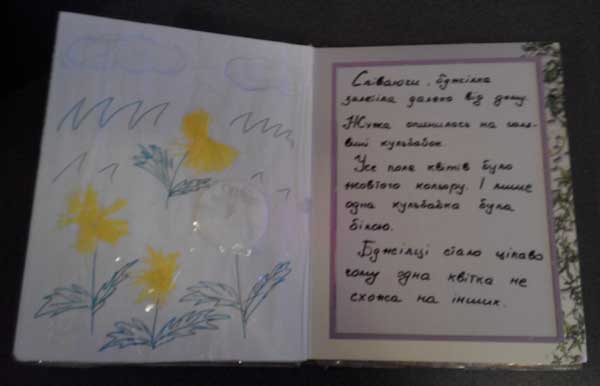 Співаючи, бджілка
залетіла далеко від дому.
Жужа опинилась на галя-
вині кульбабок.
Усе поле квітів було
жовтого кольору. І лише
одна кульбабка була
білою.
Бджілці стало цікаво
чому одна квітка не
схожа на інших.